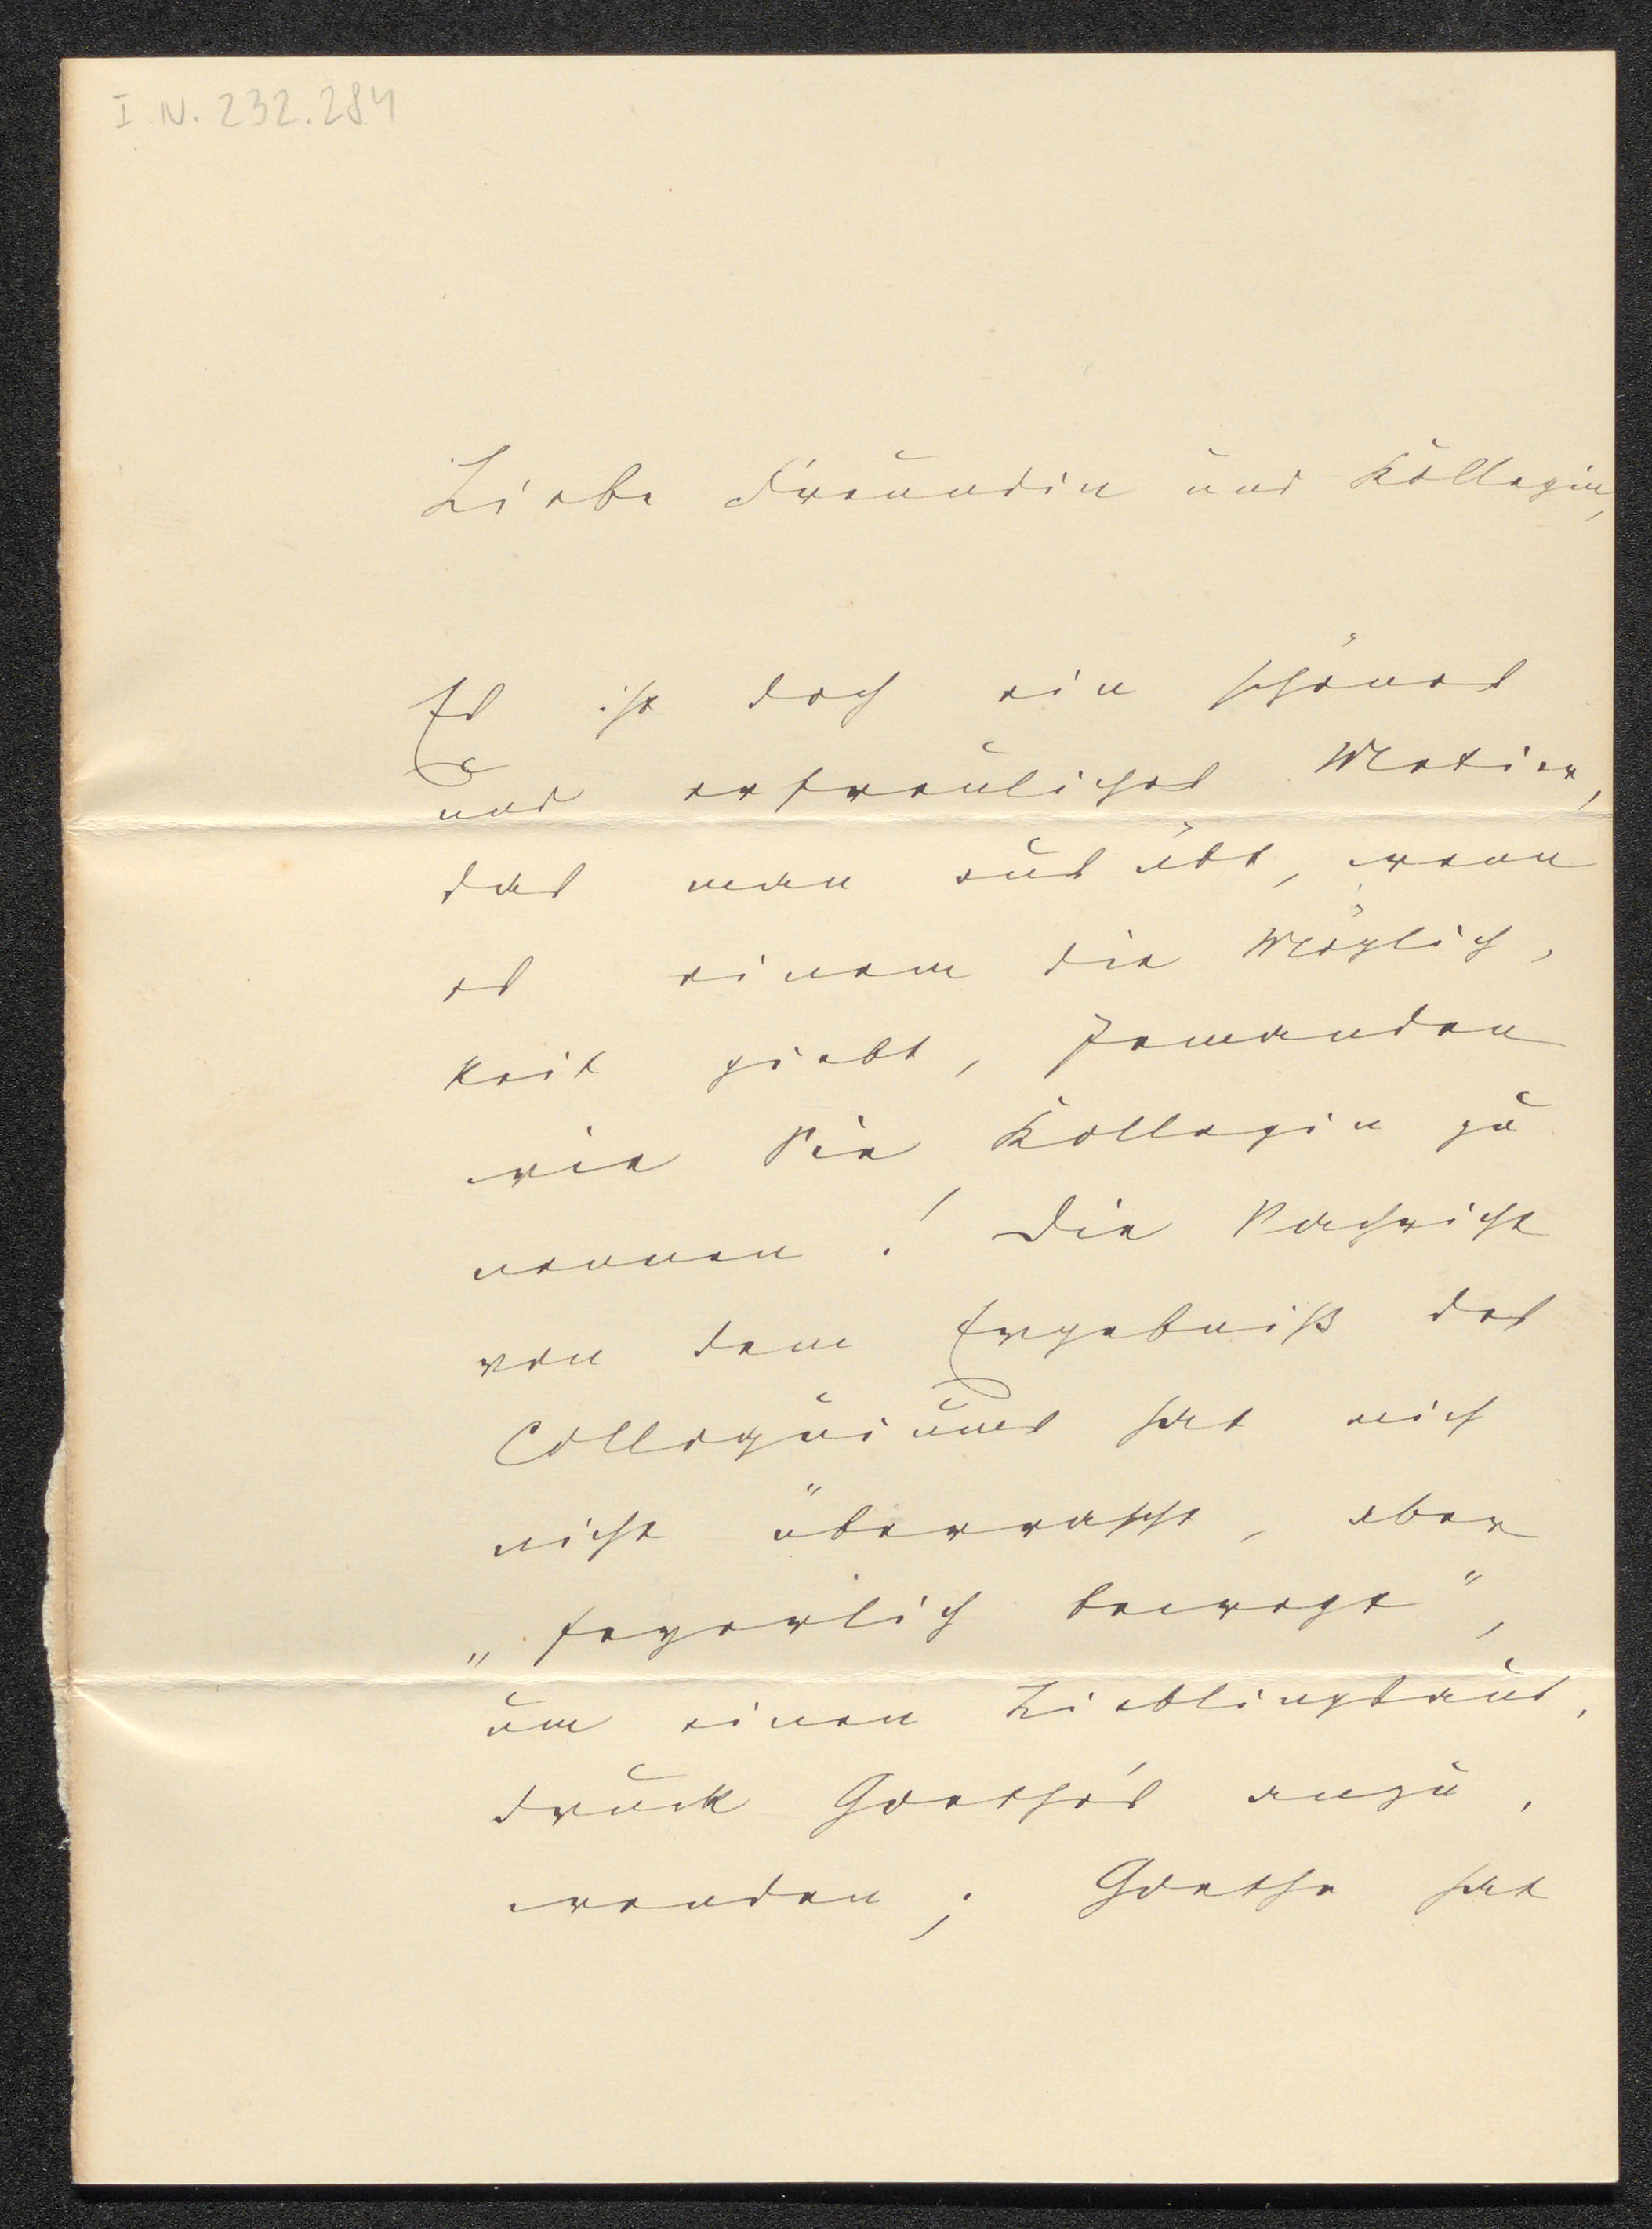 I.N. 232.284
Liebe Freundin und Kollegin,
Es ist doch ein schönes
und erfreuliches Metier,
das man ausübt, wenn
es einem die Möglich-
keit giebt, Jemanden
wie Sie Kollegin zu
nennen! Die Nachricht
von dem Ergebniß des
Colloquiums hat mich
nicht überrascht, aber
„feyerlich bewegt",
um einen Lieblingsaus-
druck Goethe's anzu-
wenden; Goethe hat